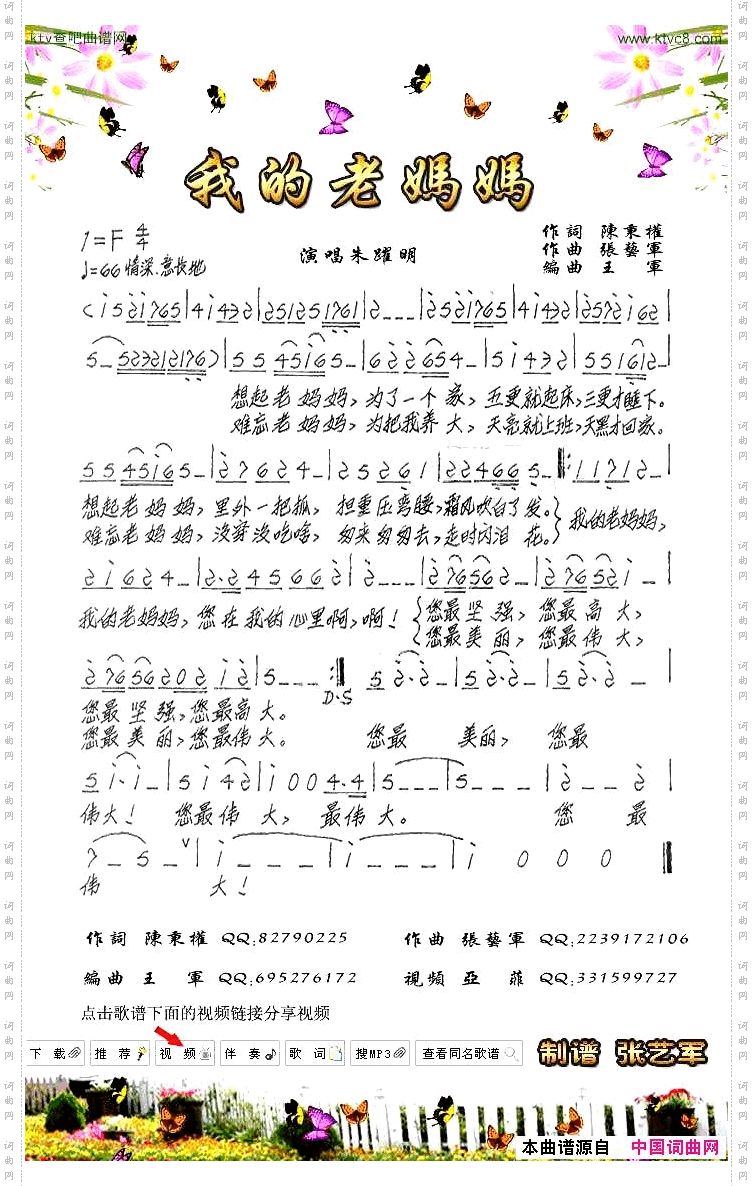 ktv查吧曲谱网
www.ktvc8.com
我的老媽媽
1=F 4/4
♩=66 情深、意长地
演唱朱躍明
作詞 陳秉權
作曲 張藝軍
编曲 王 軍
想起老妈妈,为了一个家,五更就起床,三更才睡下。
难忘老妈妈,为把我养大,天亮就上班,天黑才回家。
想起老妈妈,里外一把抓,担重压弯腰,霜风吹白了发。
难忘老妈妈,没穿没吃啥,匆来匆匆去,走时闪泪花。
我的老妈妈,
我的老妈妈,您在我的心里啊,啊!
您最坚强,您最高大,
您最美丽,您最伟大,
D.S
您最坚强,您最高大。
您最美丽,您最伟大。 您最 美丽,您最
伟大! 您最伟大, 最伟大。 您 最
伟 大!
作詞 陳秉權 QQ:82790225
作曲 張藝軍 QQ:2239172106
编曲 王 軍 QQ:695276172
視頻 亞 菲 QQ:331599727
点击歌谱下面的视频链接分享视频
下载 推荐 视频 伴奏 歌词 搜MP3 查看同名歌谱
制谱 张艺军
本曲谱源自 中国词曲网